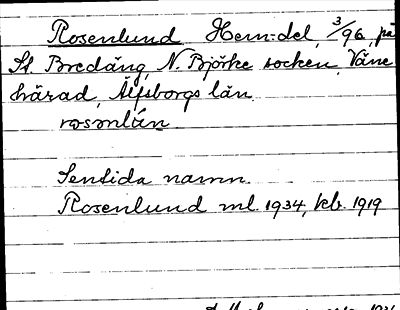 Rosenlund Hem:del, 3/96, på
St. Bredäng, N. Björke socken, Väne
härad, Älfsborgs län.
rosnlún
Sentida namn.
Rosenlund ml. 1934, kb. 1919